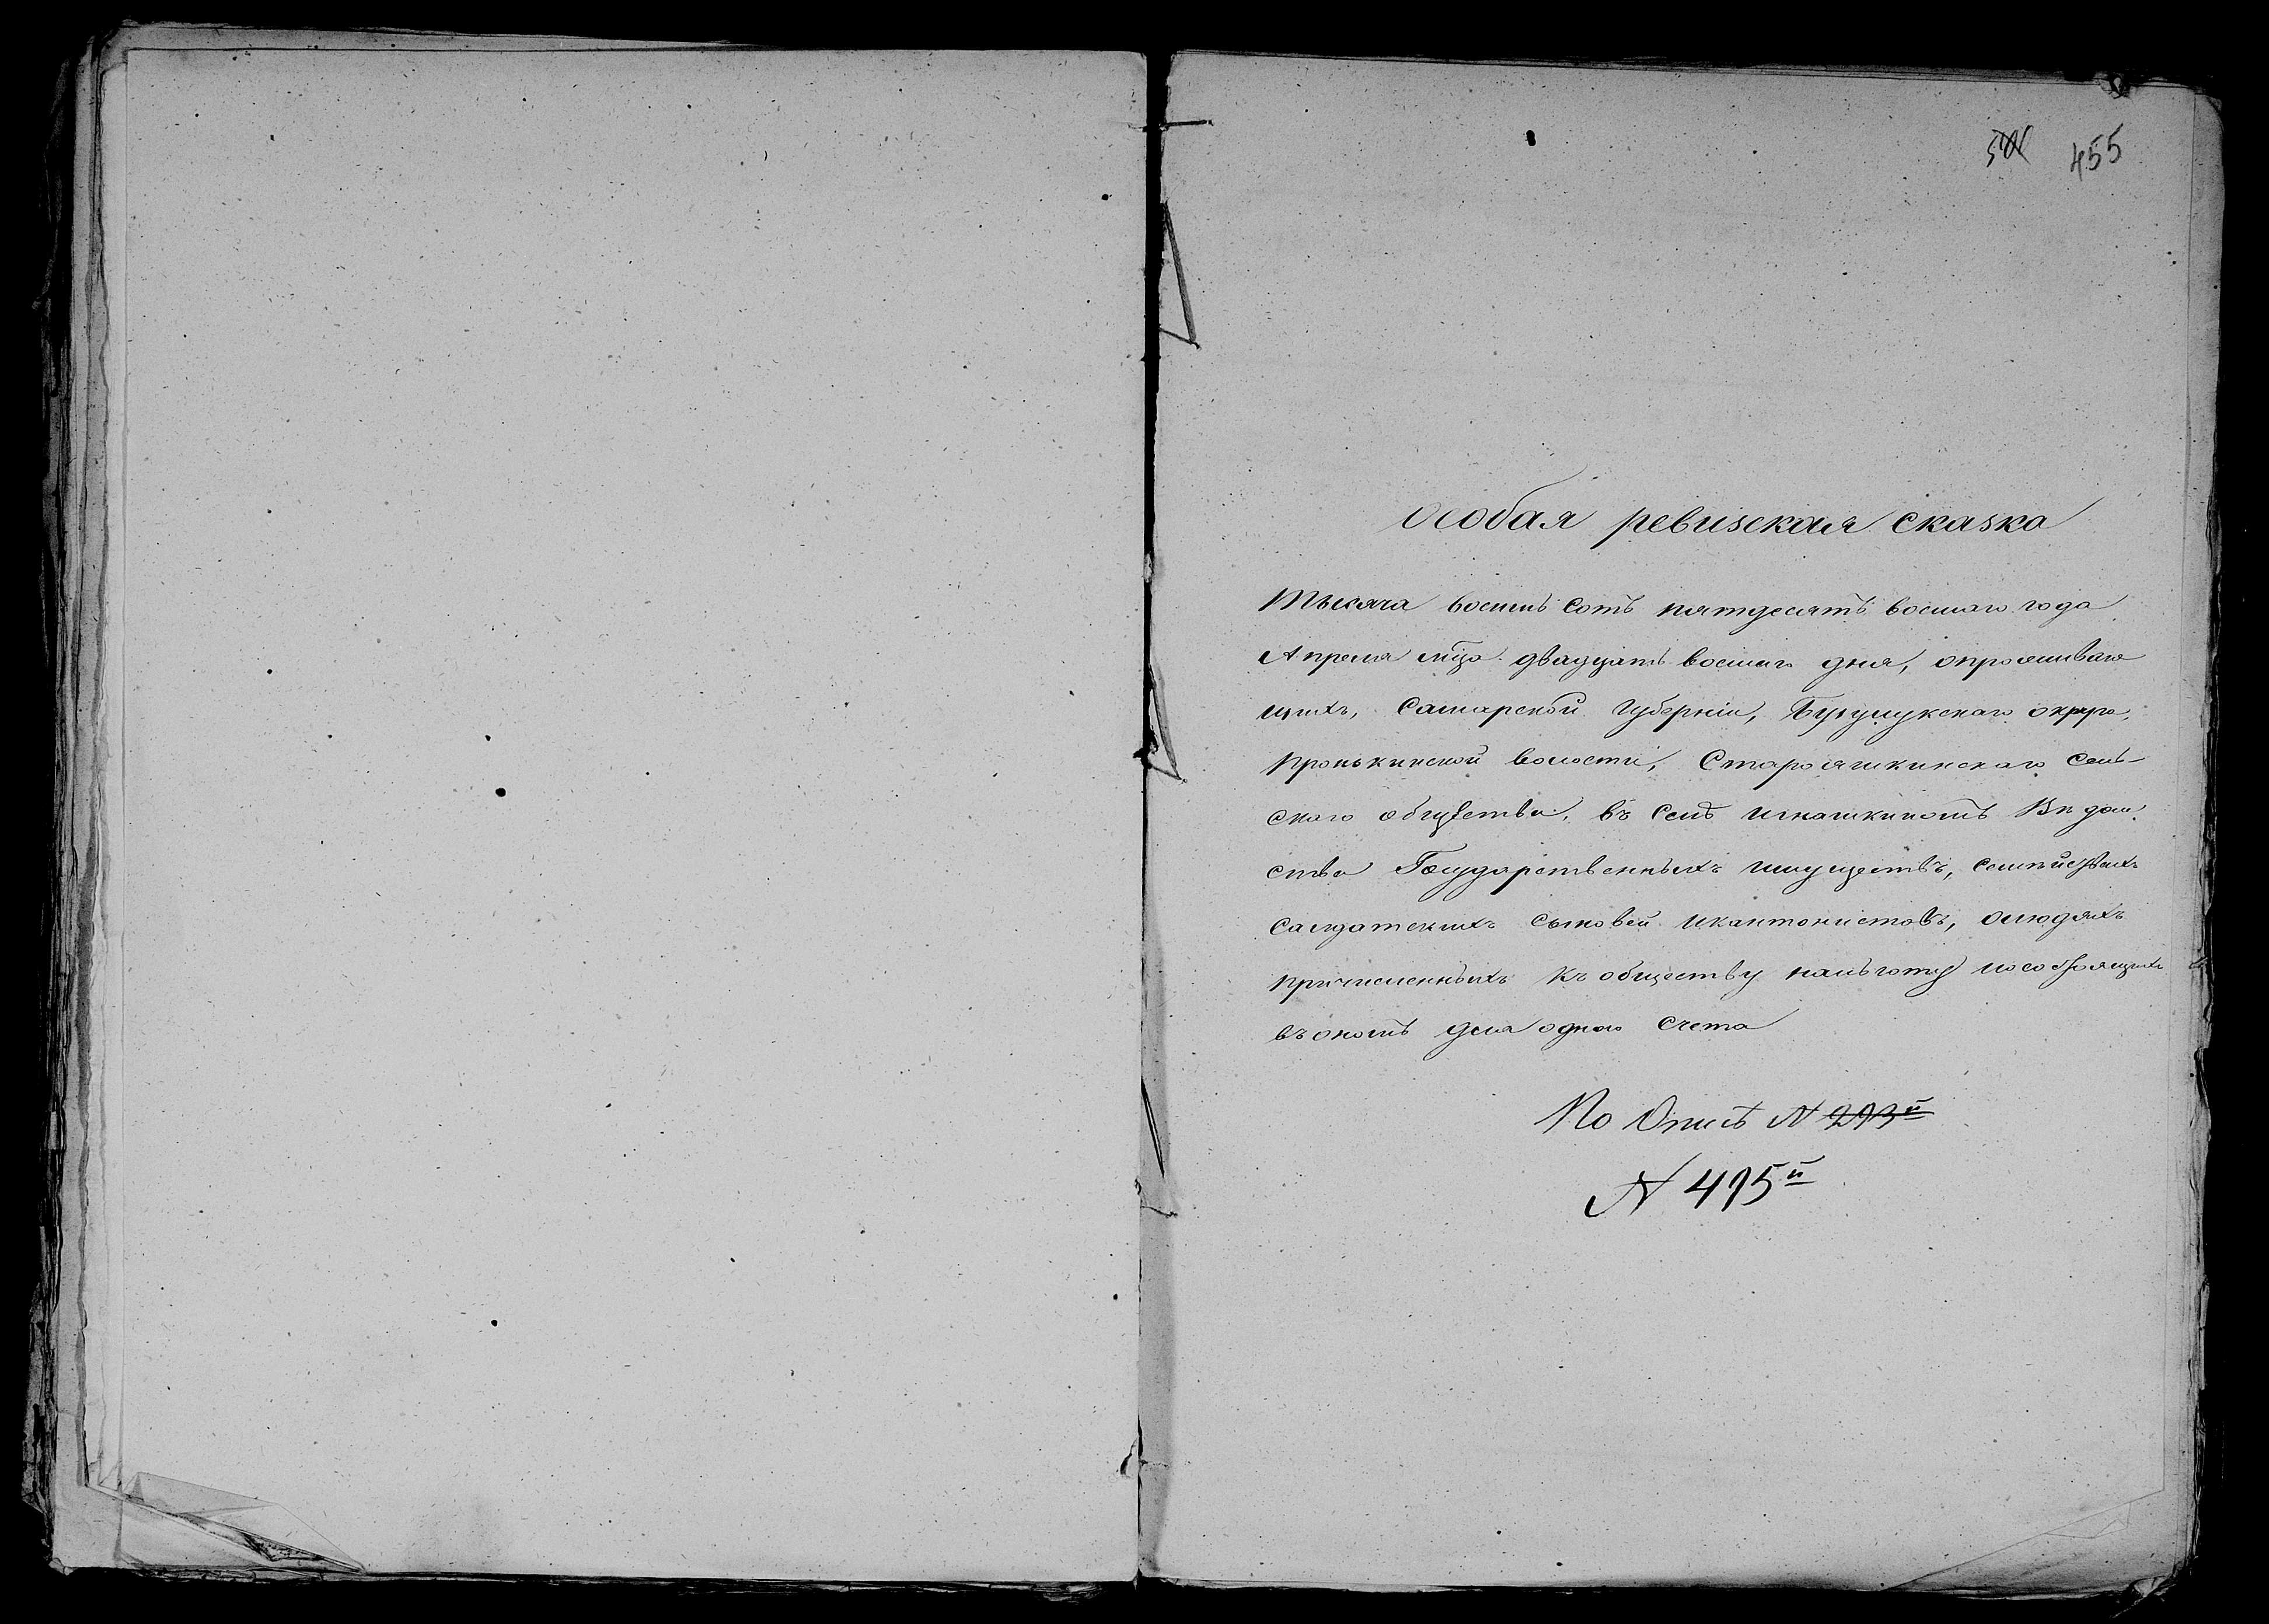 455
Особая ревизская сказка
Тысяча восемь сотъ пятдесятъ восмаго года
Апреля мца двадцать восмаго дня, опроживаю
щихъ, Самарской Губерніи, Бузулукскаго округа,
Пронькинской волости, Староякшкинскаго Сель-
скаго общества, въ Селѣ Игнашкиномъ Вѣдом
ства Государственныхъ имуществъ,
Салдатскихъ сыновей икантонистовъ, олюдяхъ
причисленныхъ къ обществу
въономъ для одного счета
По Описѣ N 293й
N 495й